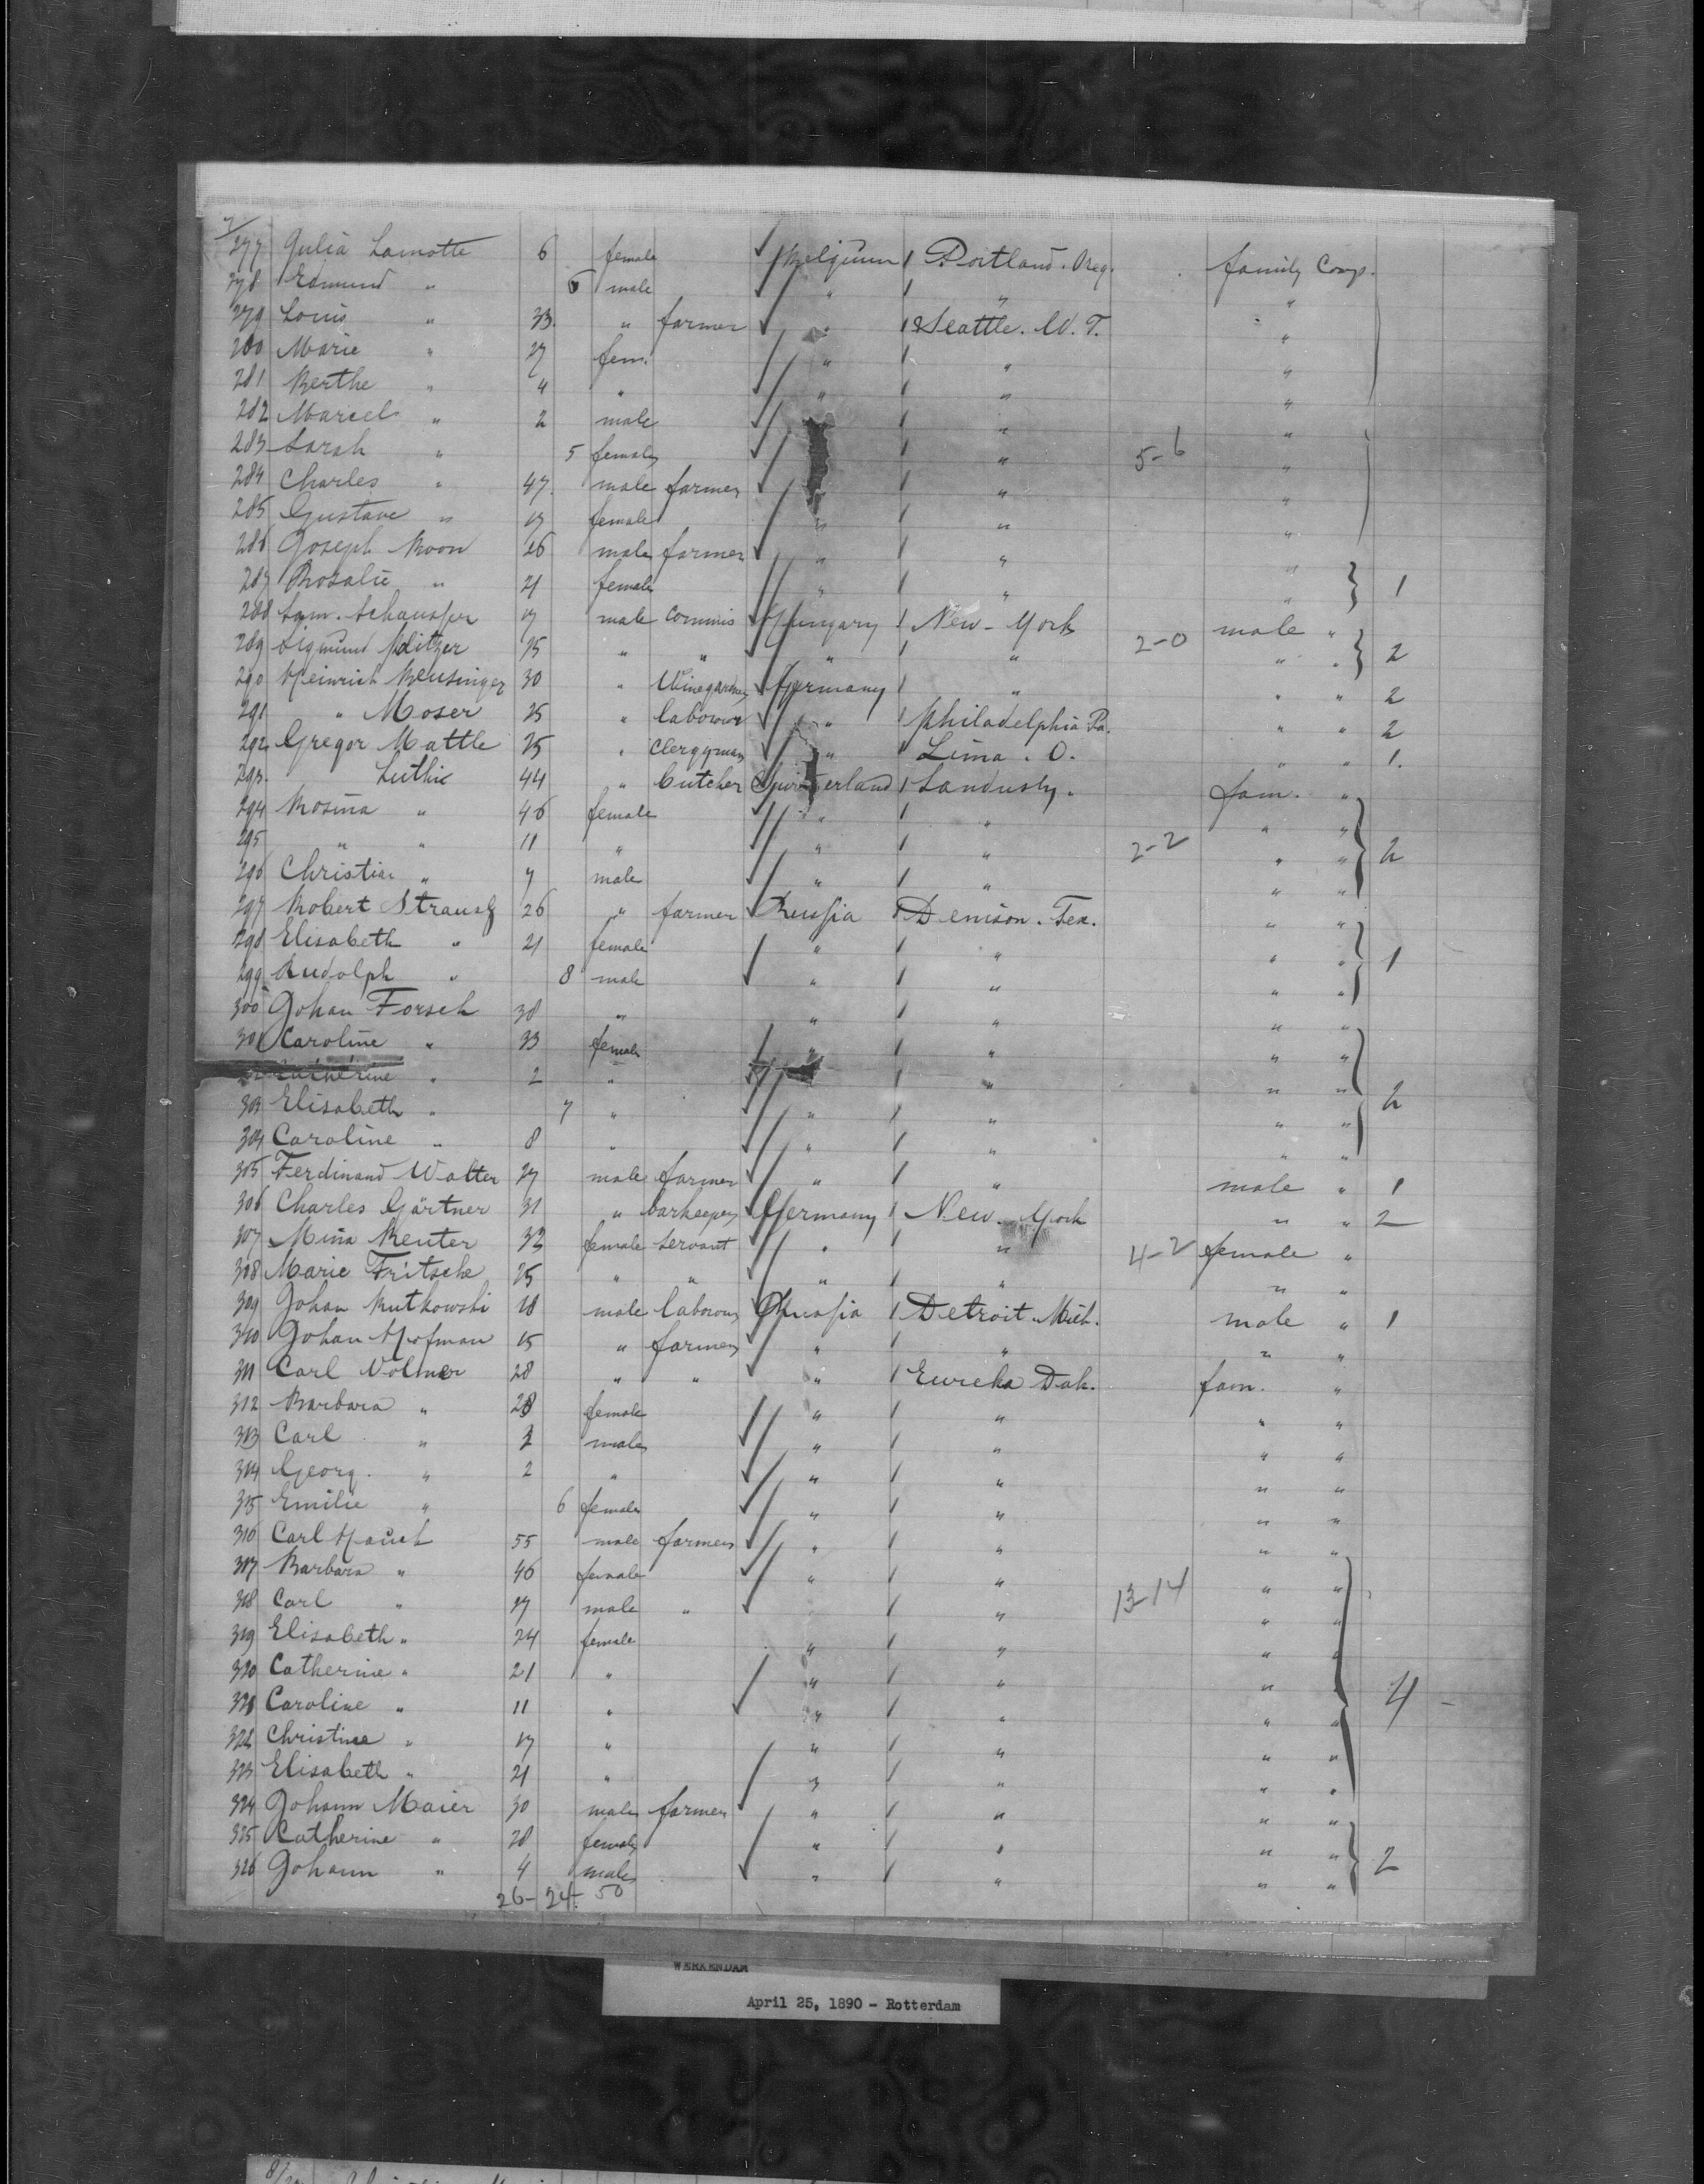 7/
277 Julia Lamotte 6 female Belgium Portland. Oreg. family Comp.
278 Edmund " 6 male " " "
279 Louis " 33. " farmer " Seattle. W. T. "
280 Marie " 27 fem. " " "
281 Berthe " 4 " " " "
282 Marcel " 2 male " "
283 Sarah " 5 female " 5-6 "
284 Charles " 47. male farmer " " "
285 Gustave " 17 female " " "
286 Joseph Boon 26 male farmer " " "
287 Rosalie " 21 female " " " 1
288 Sam. 17 male Commis Hungary New-York male "
289 Sigmund Politzer 15 " " " " 2-0 " " 2
290 Heinrich Bensinger 30 " Winegardner Germany " " " 2
291 " Moser 25 " labourer " Philadelphia Pa. " " 2
292 Gregor Mattle 25 " Clergyman " Lima. O. " " 1.
293. Luthie 44 " butcher Switzerland Sandusky. fam. "
294 Rosina " 46 female " " " "
295 " " 11 " " " 2-2 " " 2
296 Christian " 7 male " " " "
297 Robert Strauss 26 " farmer Russia Denison. Tex. " "
298 Elisabeth " 21 female " " " " 1
299 Rudolph " 8 male " " " "
300 Johan Forsch 38 " " " " "
301 Caroline " 33 female " " " "
Catherine " 2 " " " "
303 Elisabeth " 7 " " " " " 2
304 Caroline " 8 " " " " "
305 Ferdinand Walter 27 male farmer " " male " 1
306 Charles Gärtner 31 " barkeeper Germany New-York " " 2
307 Mina Reuter 32 female servant " " 4-2 female "
308 Marie Fritsche 25 " " " " " "
309 Johan Rutkowski 28 male labourer Russia Detroit Mich. male " 1
310 Johan Hofman 15 " farmer " " " "
311 Carl Volmer 28 " " " Eureka Dak. fam. "
312 Barbara " 28 female " " " "
313 Carl " 3 male " " " "
314 Georg. " 2 " " " " "
315 Emilie " 6 female " " " "
316 Carl Hauch 55 male farmer " " " "
317 Barbara " 46 female " " " "
318 Carl " 27 male " " 13-14 " "
319 Elisabeth " 24 female " " " "
320 Catherine " 21 " " " " " 4 -
321 Caroline " 11 " " " " "
322 Christine " 17 " " " " "
323 Elisabeth " 21 " " " " "
324 Johann Maier 30 male farmer " " " "
325 Catherine " 28 female " " " " 2
326 Johann " 4 male " " " "
26-24. 50
WERKENDAM
April 25, 1890 - Rotterdam
8/